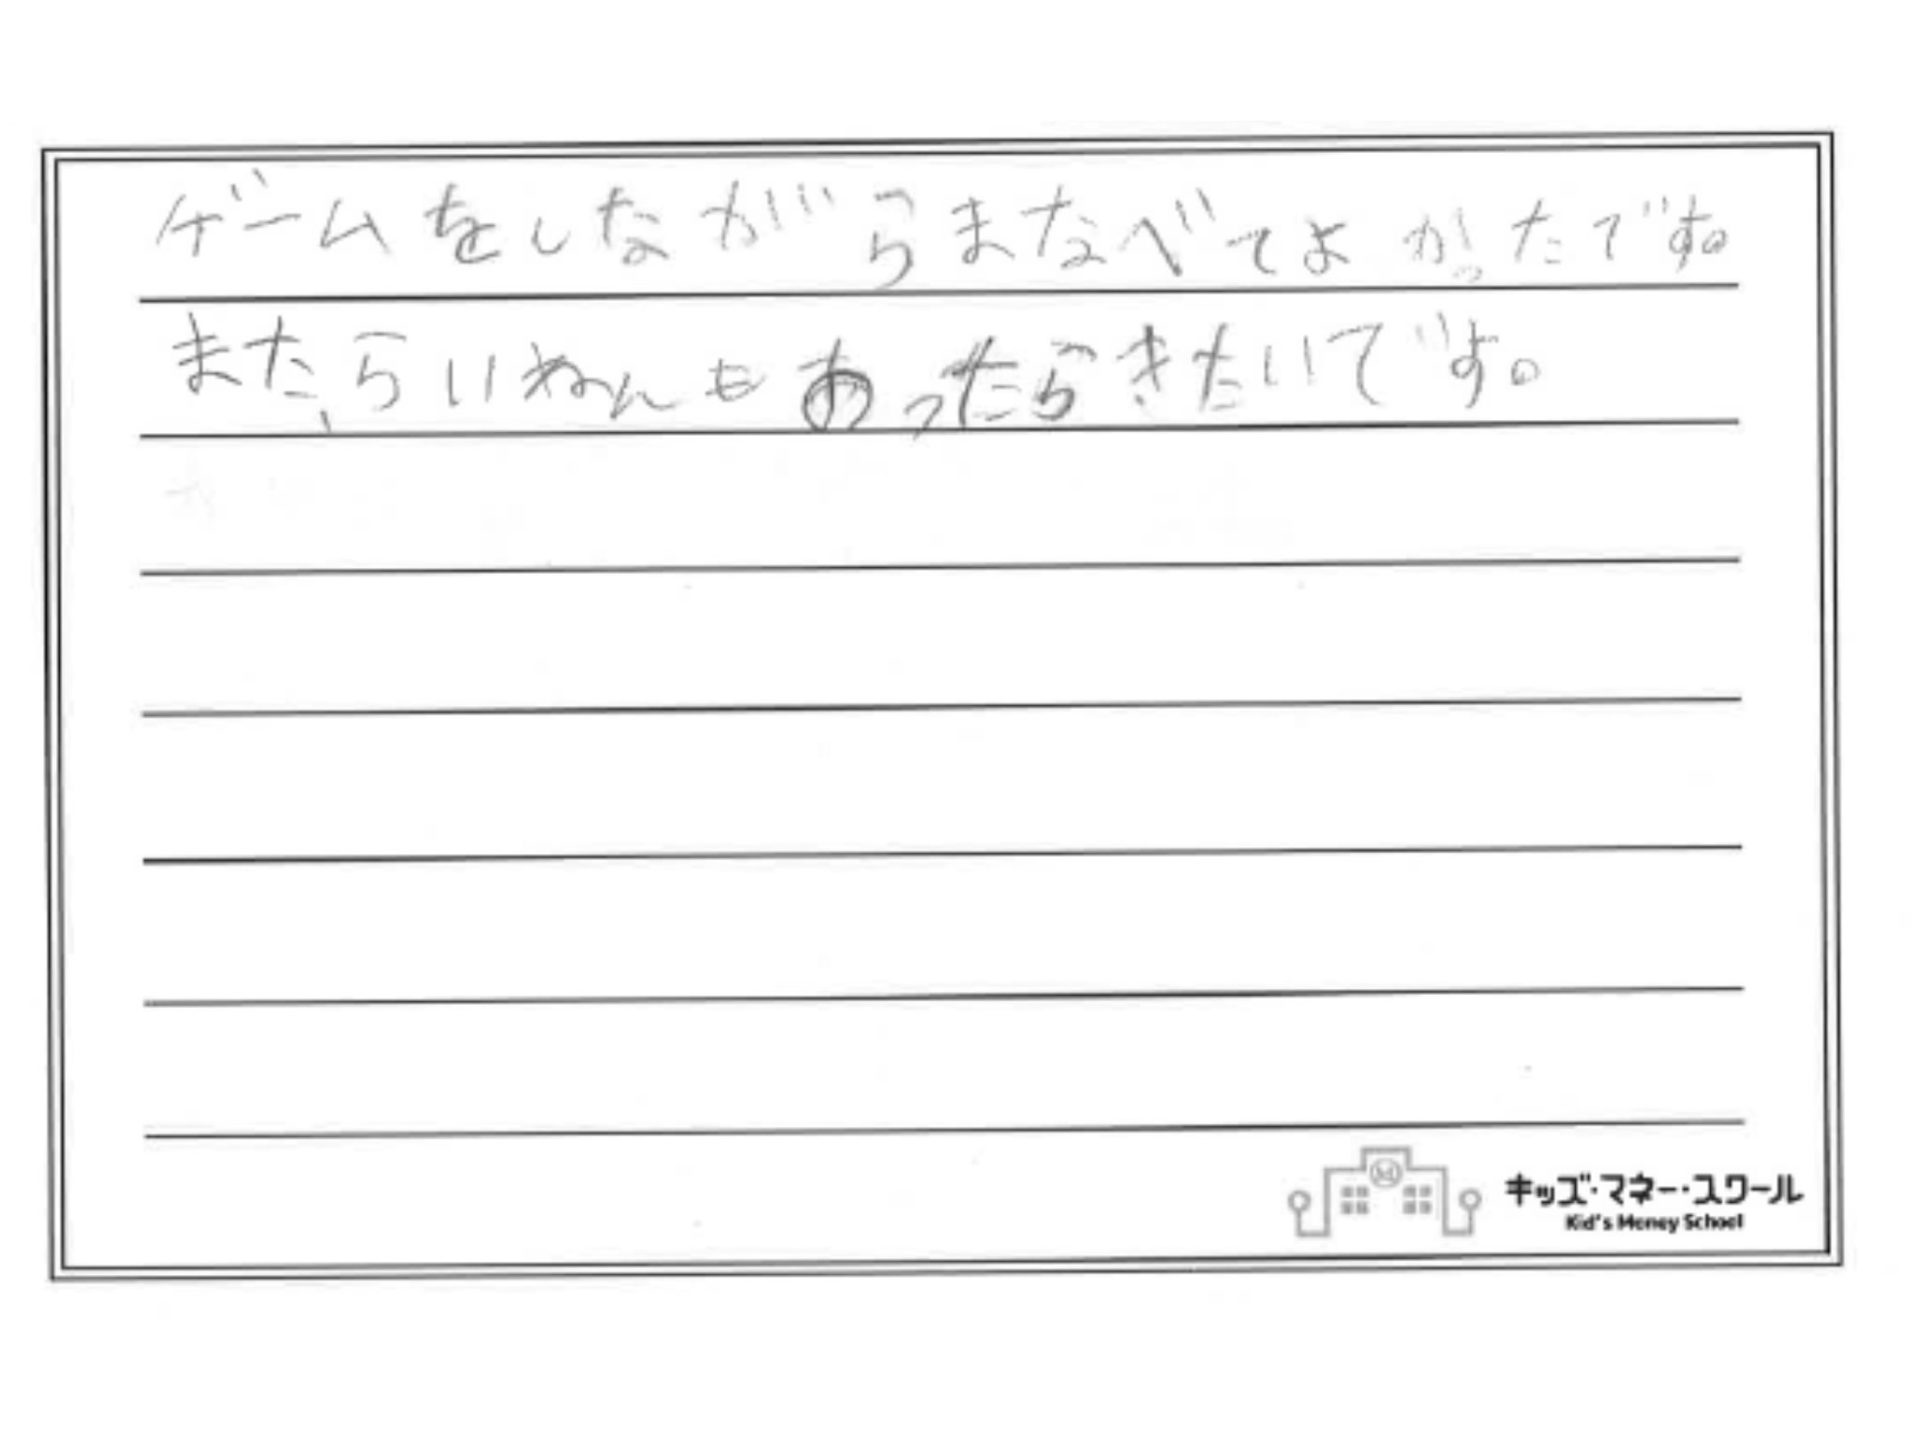 ゲームをしながらまなべてよかったです。
また、らいねんもあったらきたいです。
キッズ・マネー・スクール
Kid's Money School